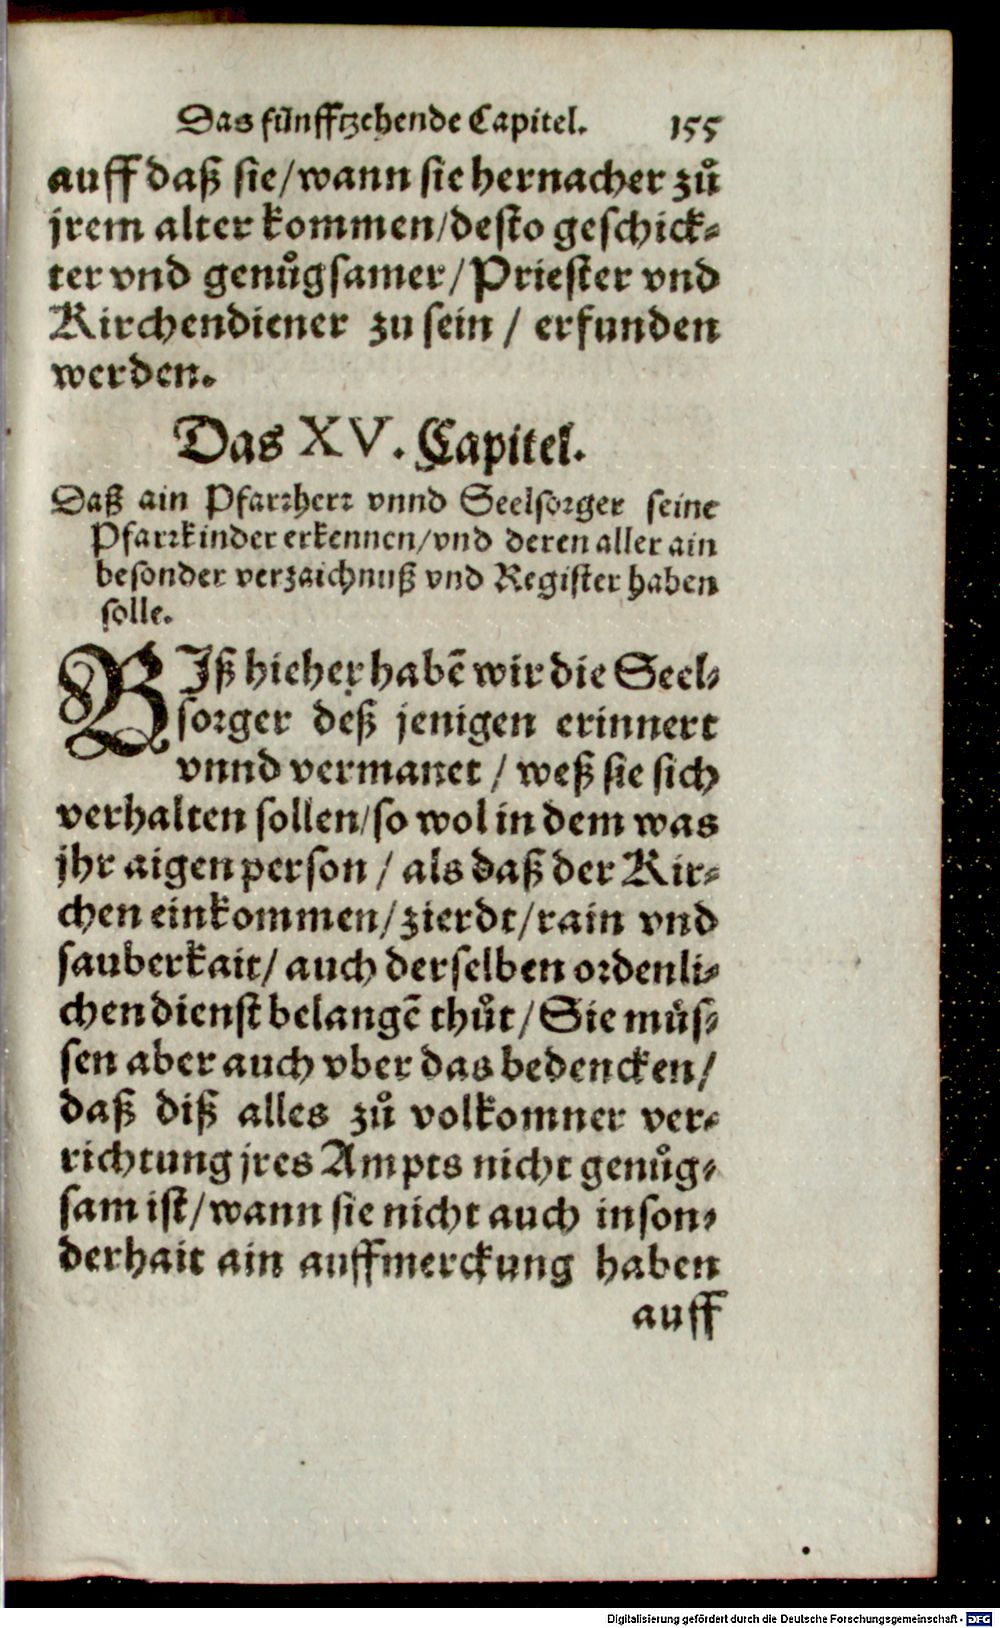 Das fünfftzehende Capitel. 155
auff daß sie/wann sie hernacher zů
jrem alter kommen/desto geschick⸗
ter vnd genůgsamer/Priester vnd
Kirchendiener zu sein / erfunden
werden.
Das XV. Capitel.
Daß ain Pfarrherr vnnd Seelsorger seine
Pfarrkinder erkennen/vnd deren aller ain
besonder verzaichnuß vnd Register haben
solle.
BIß hieher habē wir die Seel⸗
sorger deß jenigen erinnert
vnnd vermanet / weß sie sich
verhalten sollen/so wol in dem was
jhr aigen person / als daß der Kir⸗
chen einkommen/zierdt/rain vnd
sauberkait/ auch derselben ordenli⸗
chen dienst belangē thůt/Sie müs⸗
sen aber auch vber das bedencken/
daß diß alles zů volkomner ver⸗
richtung jres Ampts nicht genůg⸗
sam ist/wann sie nicht auch inson⸗
derhait ain auffmerckung haben
auff
Digitalisierung gefördert durch die Deutsche Forschungsgemeinschaft - DFG